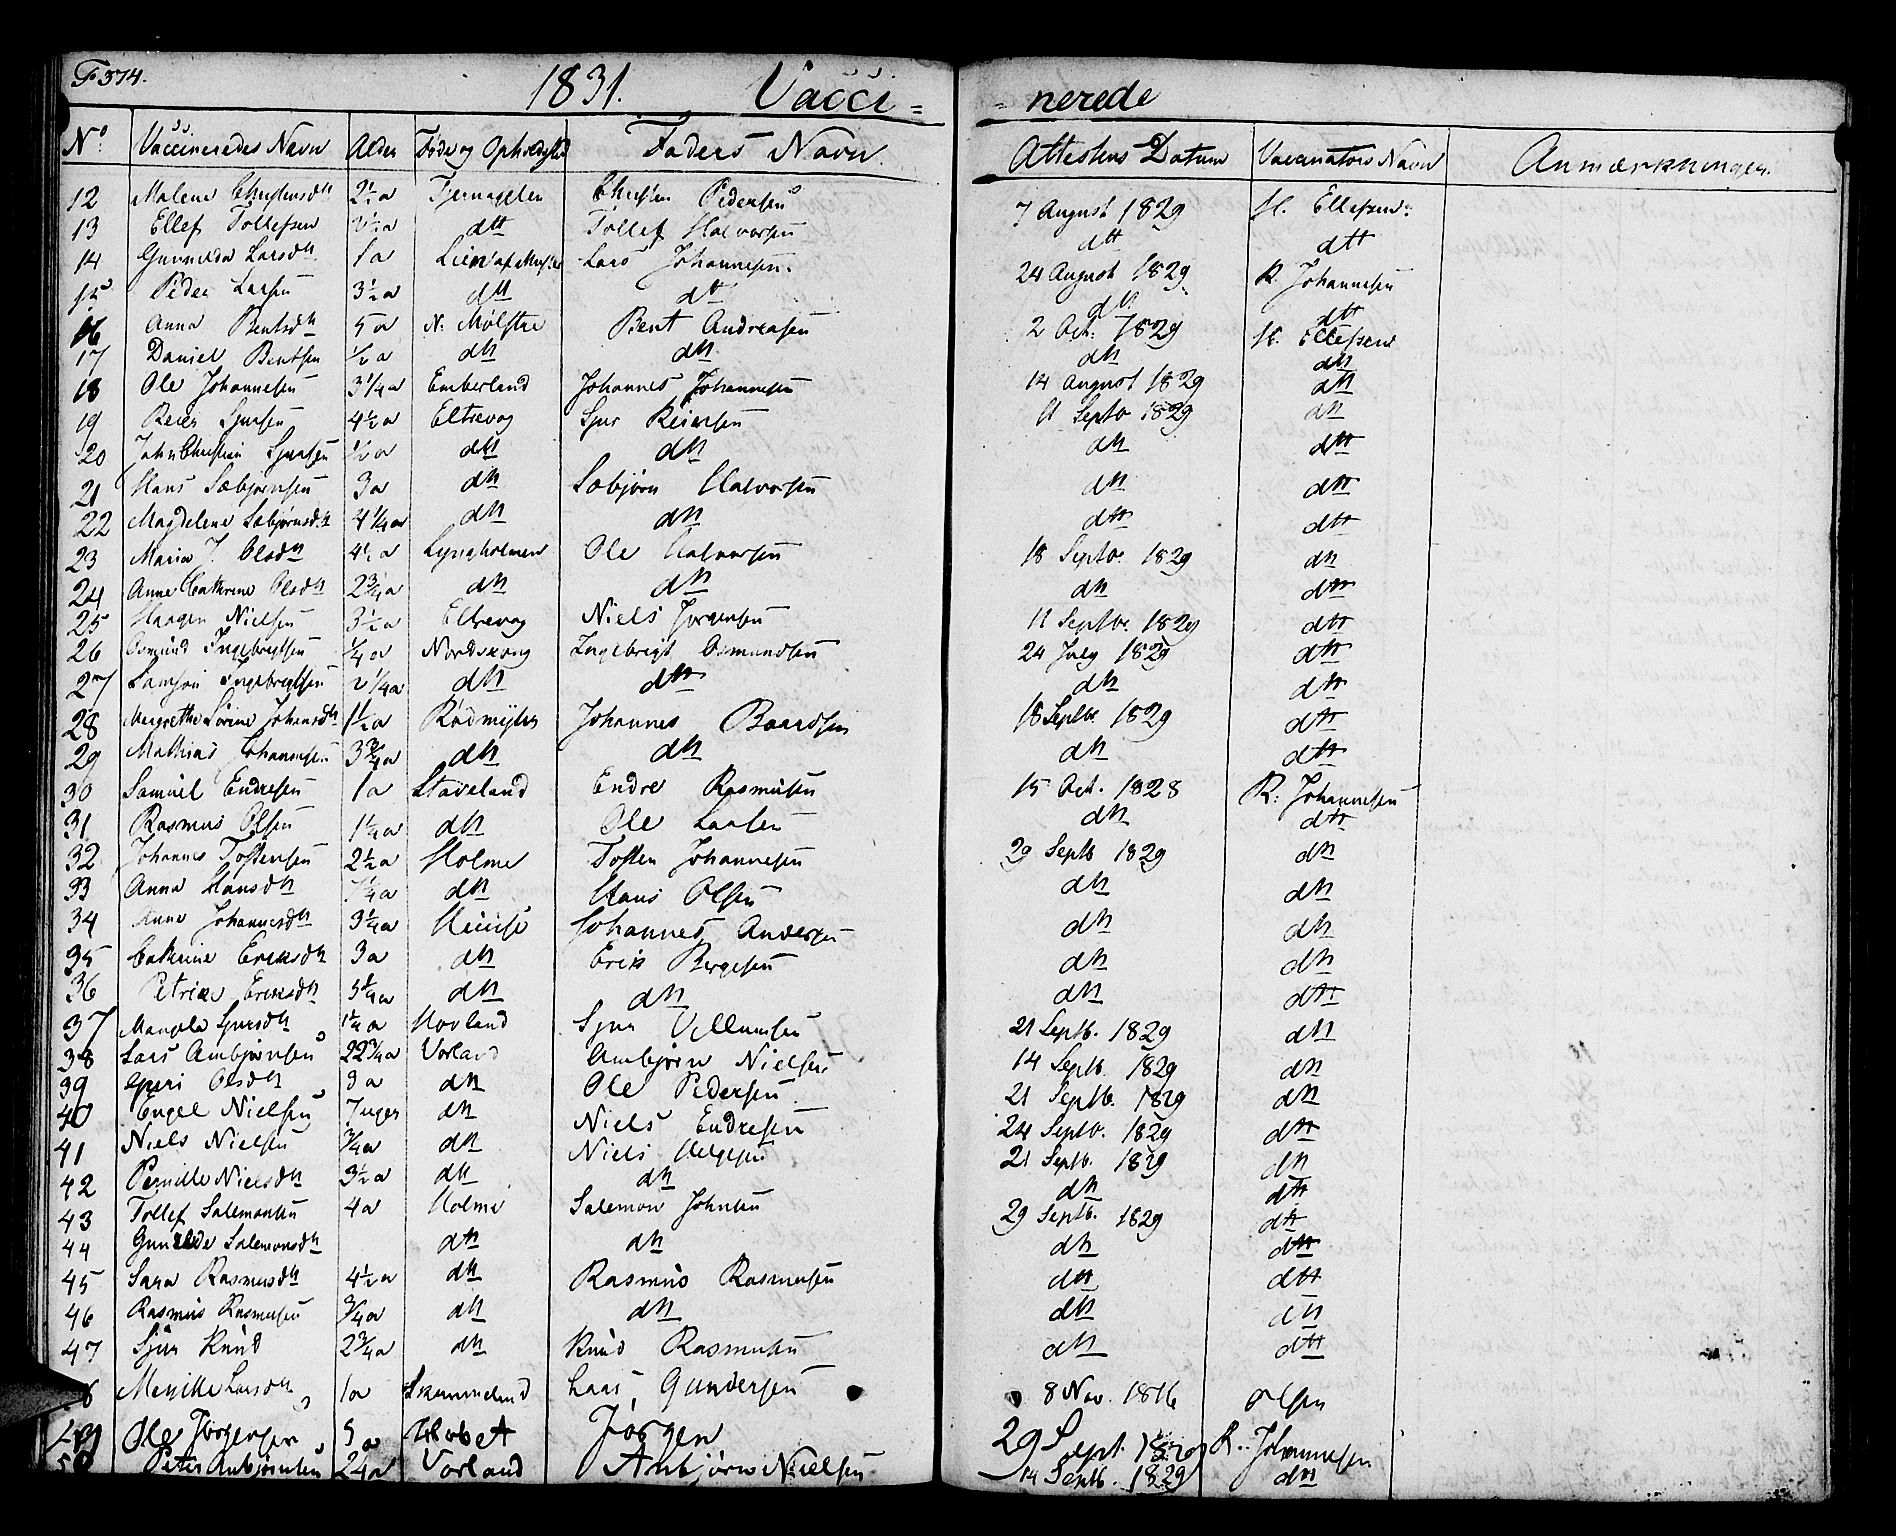 F 374.
1831. Vacci= =nerede
No. Vaccineredes Navn Alder Føde og Opholdsted Faders Navn Attestens Datum Vaccinators Navn Anmærkninger.
12 Malene Christensdtt 2½ a Tjernagelen Christen Pedersen 7 August 1829 H. Ellefsen
13 Ellef Tollefsen ½ a dtt Tollef Halvorsen dtt dtt
14 Gunnilda Larsdtt 1 a Lars Johannesen. 24 August 1829 R. Johannesen
15 Peder Larsen 3½ a dtt dtt dtt dtt
16 Anna Bentsdtt 5 a N. Mølstre Bent Andreasen 2 Oct. 1829 H. Ellefsen
17 Daniel Bentsen ½ a dtt dtt dtt dtt
18 Ole Johannesen 3¼ a Emberland Johannes Johannesen 14 August 1829 dtt
19 Reier Sjursen 4½ a Eltrevog Sjur Reiersen 11 Septb 1829 dtt
20 John Christian Sjursen ½ a dtt dtt dtt dtt
21 Hans Sæbjørnsen 3 a dtt Sæbjørn Halvorsen dtt dtt
22 Magdelene Sæbjørnsdtt 4¼ a dtt dtt dtt dtt
23 Maria J. Olsdtt 4½ a Lyngholmen Ole Halvorsen 18 Septbr. 1829 dtt
24 Anne Cathrine Olsdtt 2¾ a dtt dtt dtt dtt
25 Haagen Nielsen 3½ a Eltrevog Niels Jørgensen 11 Septbr. 1829 dtt
26 Osmund Ingebrigtsen ¼ a Nordskaag Ingebrigt Osmundsen 24 July 1829 dtt
27 Samson Ingebrigtsen 2¼ a dtt dtt dtt dtt
28 Margrethe Sørine Johansdtt 1½ a Rødmyhr Johannes Baardsen 18 Septb. 1829 dtt
29 Mathias Johannesen 3¾ a dtt dtt dtt dtt
30 Samuel Endresen 1 a Staveland Endre Rasmusen 15 Oct. 1828 R. Johannesen
31 Rasmus Olsen 1¼ a dtt Ole Larsen dtt dtt
32 Johannes Tostensen 2½ a Holme Tosten Johannesen 29 Septb 1829 dtt
33 Anna Hansdtt ¼ a dtt Hans Olsen dtt dtt
34 Anne Johannesdtt 3¼ a Johannes Andersen dtt dtt
35 Cathrine Eriksdtt 3 a dtt Erik Bergesen dtt dtt
36 Petrica Eriksdtt 5¼ a dtt dtt dtt dtt
37 Sjursdtt 1¼ a Hovland Sjur Villumsen 21 Septb. 1829 dtt
38 Lars Ambjørnsen 22¾ a Vorland Ambjørn Nielsen 14 Septb. 1829 dtt
39 Guri Olsdtt 3 a dtt Ole Pedersen 21 Septb. 1829 dtt
40 Engel Nielsen 7 uger dtt Niels Endresen 24 Septb. 1829 dtt
41 Niels Nielsen ¾ a dtt Niels Helgesen 21 Septb. 1829 dtt
42 Pernille Nielsdtt 3½ a dtt dtt dtt dtt
43 Tollef Salemonsen 4 a Holme Salemon Johnsen 29 Septb. 1829 dtt
44 Gunilde Salemonsdtt dtt dtt dtt dtt
45 Sara Rasmusdtt 4½ a dtt Rasmus Rasmusen dtt dtt
46 Rasmus Rasmusen ¾ a dtt dtt dtt dtt
47 Sjur Knud 2¾ a dtt Knud Rasmusen dtt dtt
8 Larsdtt 1 a Lars Gundersen 8 Nov. 1816 Olsen
49 Ole Jørgensen 5 a Jørgen 29 Sept. 1829 R. Johannesen
50 Peter Ambjørnsen 24 a Vorland Ambjørn Nielsen 14 Septb. 1829 dtt